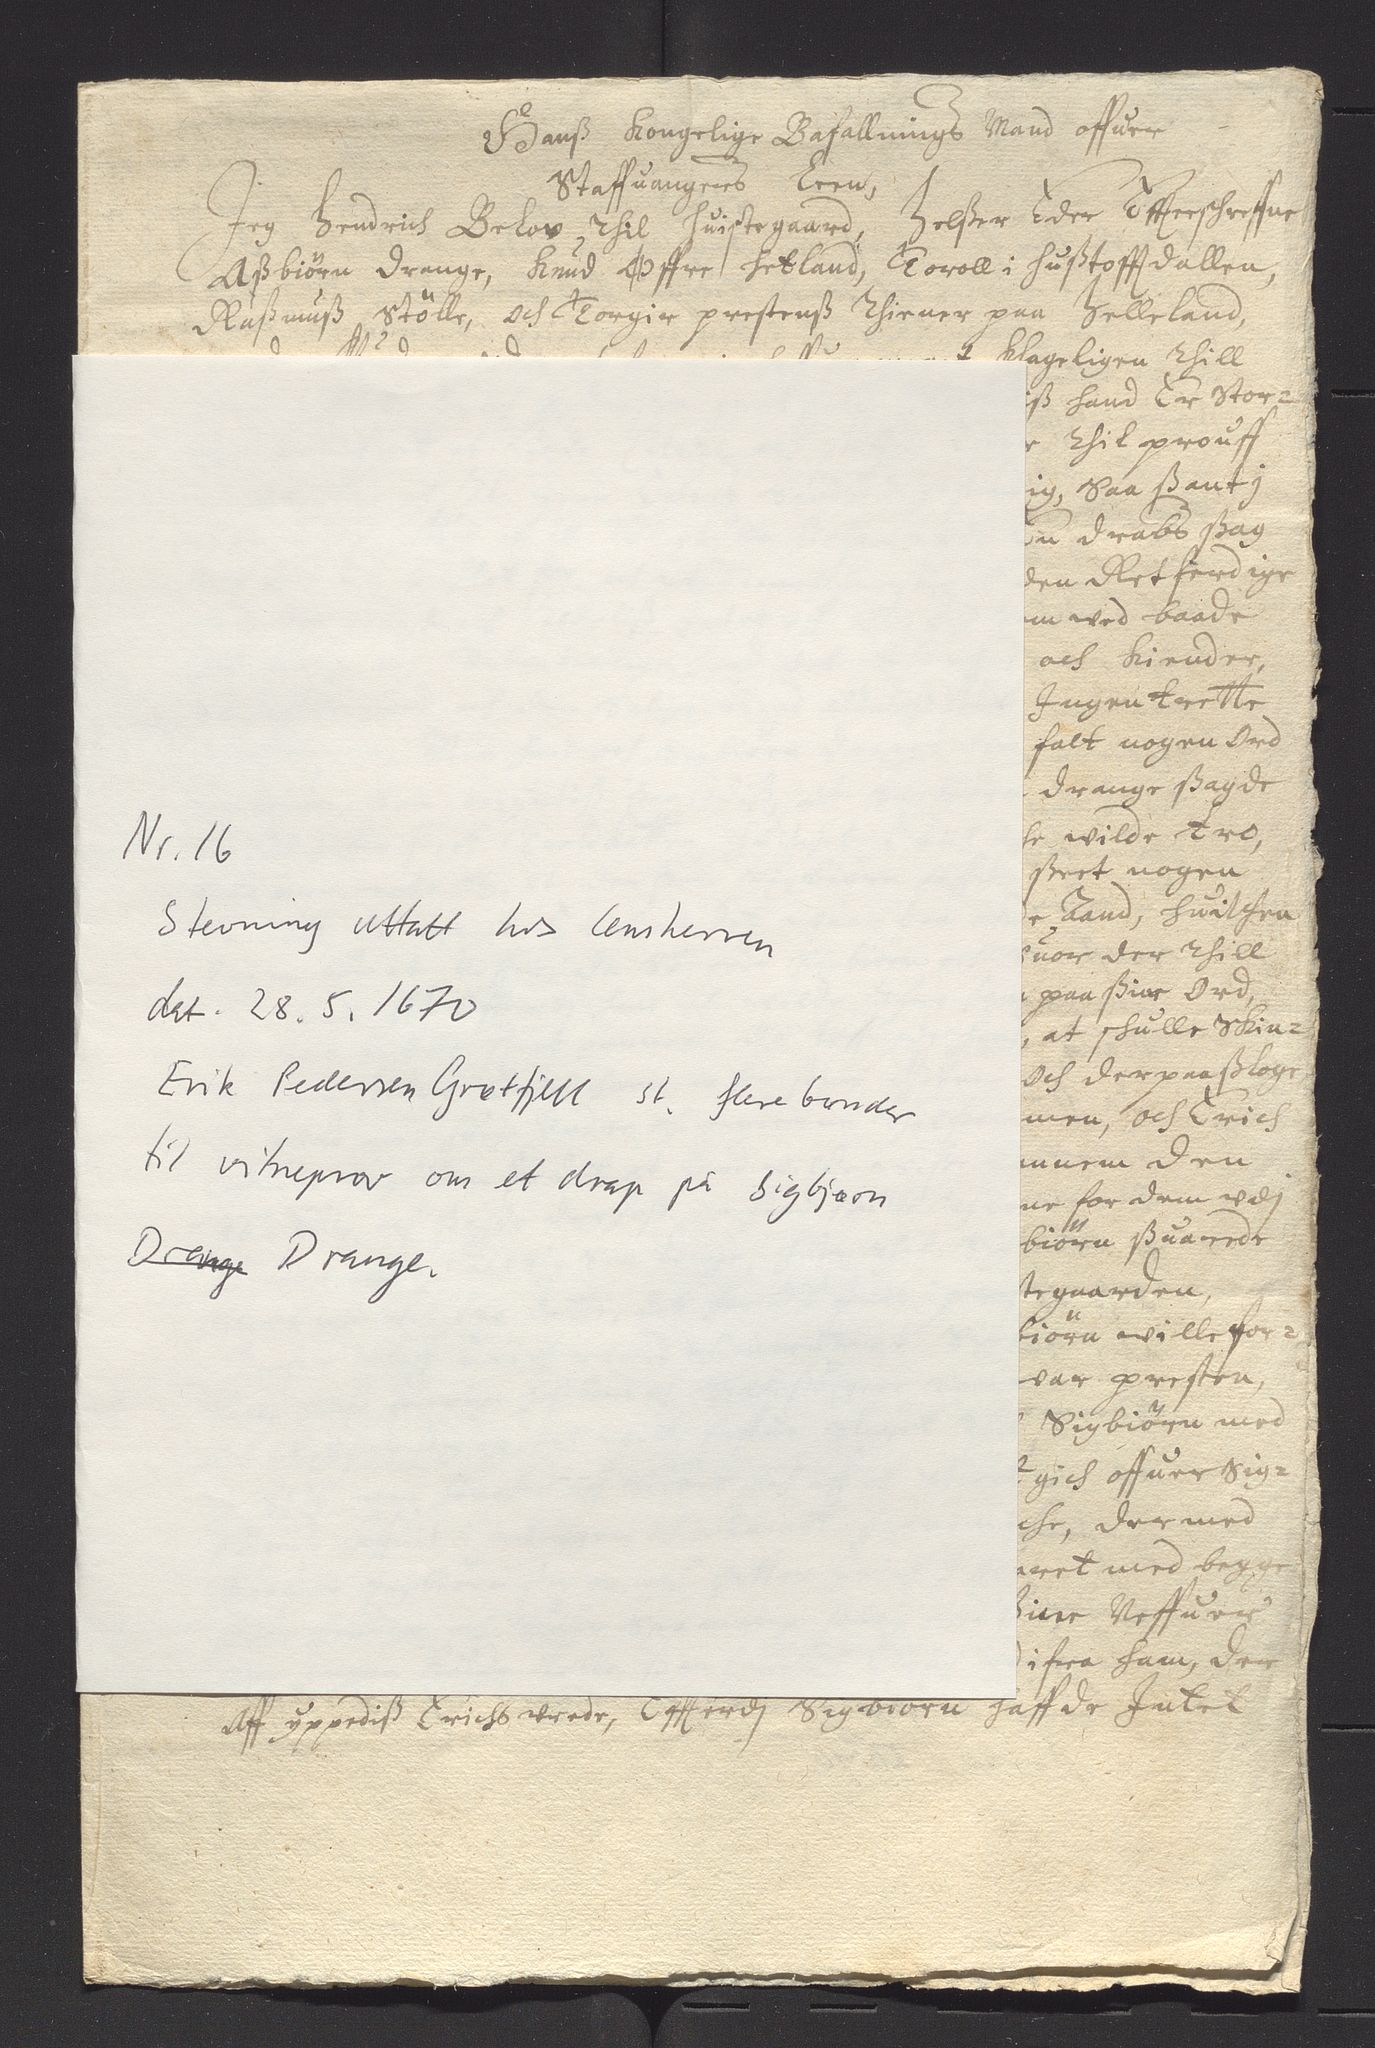 Hanß Kongelige Bafallnings Mand offuer
Staffuangers Leen,
Jeg Hendrich Below thil huistegaard, Helßer Eder Effterschreffne
Aßbiörn Drange, Knud Øffre hetland, Toroll i hußtofftdallen,
Raßmuß Stölle, och Torgir prestenß thiener paa Helleland,
klageligen thill
iß hand Er Stor-
thil prouff
ig, Saa ßant j
drabs ßag
den Retferdige
ved baade
och kiender,
Ingen trette
falt nogen Ord
Drange ßagde
wilde tro,
ßeet nogen
Tand, huilchen
der thill
paa ßine Ord,
, at schulle Skin-
Och der paa ßloge
men, och Erich
den
for dem vdj
biörn ßuarede
gaarden,
biörn wille for-
var presten,
Sigbiörn med
gich offuer Sig-
der med
med begge
Veffuer
ifra ham, der
Aff yppediß Erichs vrede, Effterdj Sigbiörn haffde Intet
Nr. 16
Stevning uttatt hos lensherren
dat. 28. 5. 1670
Erik Pedersen Grøtfjell st. flere bønder
til vitneprov om et drap på Sigbjørn
Drange Drange.